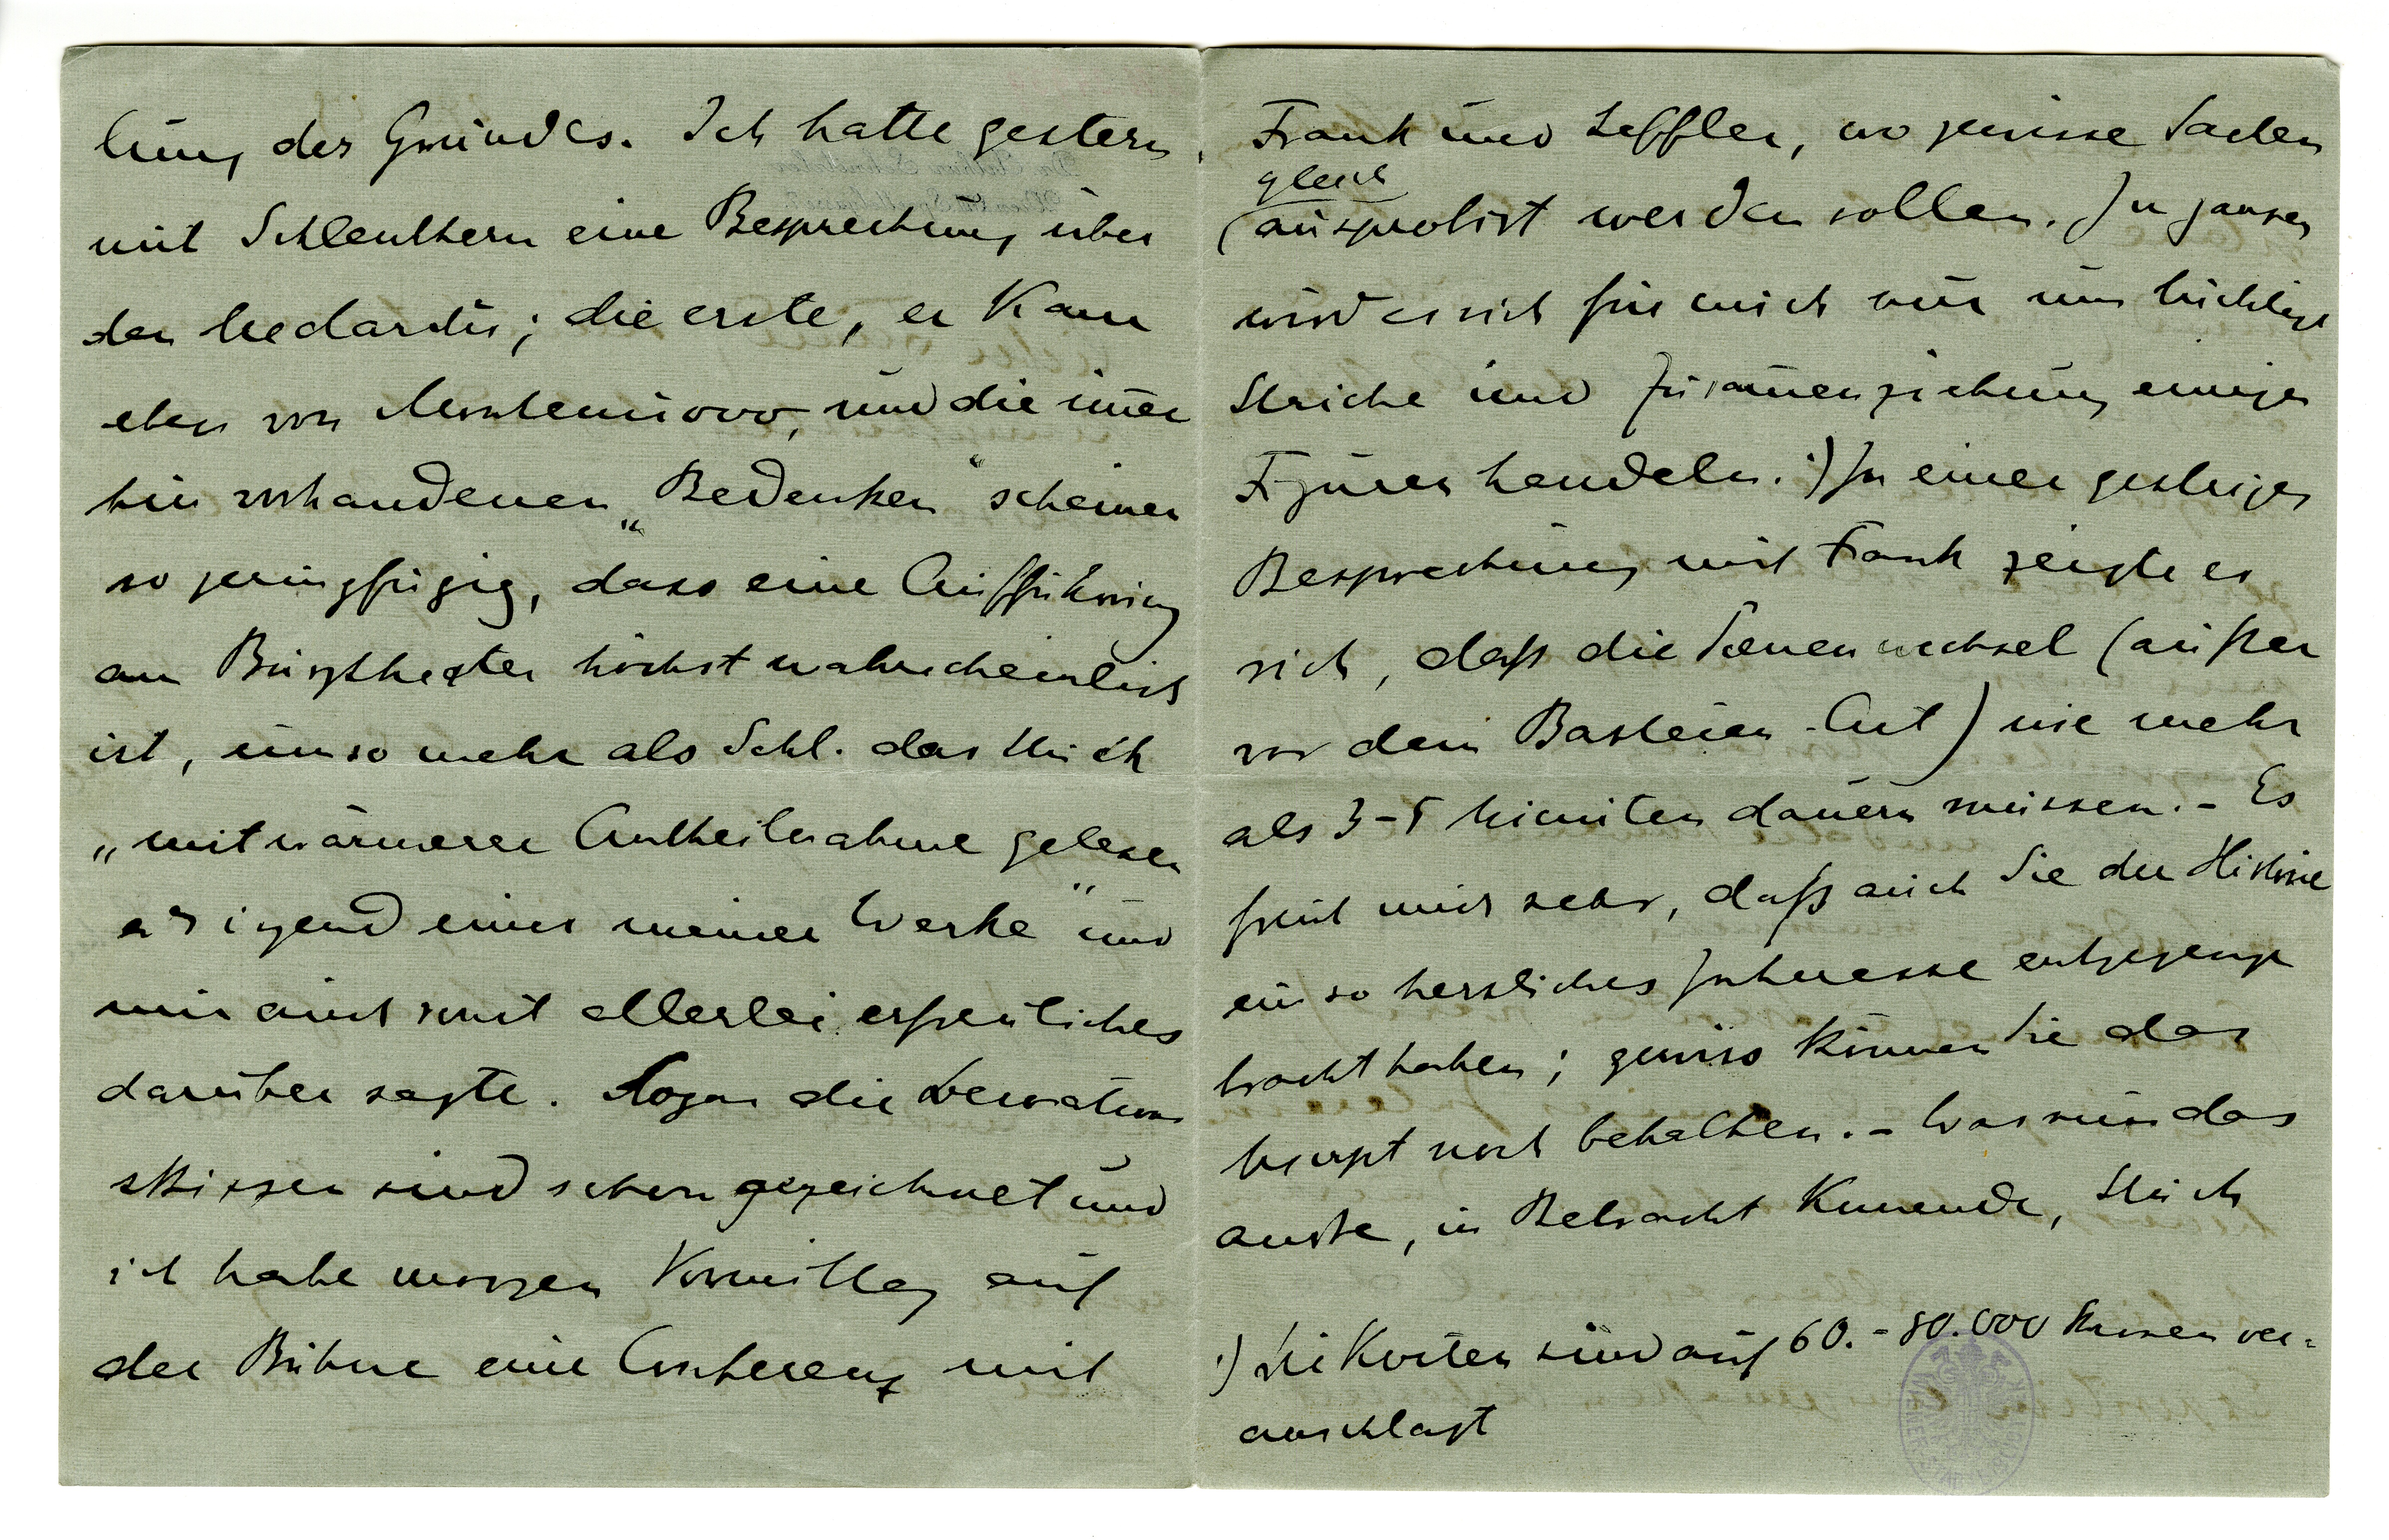 lung des Grundes. Ich hatte gestern
mit Schlenthern eine Besprechung über
den Medardus; die erste, er kam
eben von Montenuovo, und die im̅er
hin vorhandenen „Bedenken“ scheinen
so geringfügig, dass eine Aufführung
am Burgtheater höchst wahrscheinlich
ist, umso mehr als Schl. das Stück
„mit wärmerer Antheilnahme gelesen
als irgend eines meiner Werke“ und
mir auch sonst allerlei erfreuliches
darüber sagte. Sogar die Decorations
skizzen sind schon gezeichnet und
ich habe morgen Vormittag auf
der Bühne eine Conferenz mit
Frank und Lefler, wo gewisse Sachen
gleich
ausprobirt werden sollen. Im ganzen
wird es sich für mich nur um tüchtige
Striche und Zusam̅enziehung einiger
Figuren handeln. *) In einer gestrigen
Besprechung mit Frank zeigte es
sich, daß die Scenenwechsel (außer
vor dem Basteien-Act) nie mehr
als 3-5 Minuten dauern müssen. – Es
freut mich sehr, daß auch Sie der Historie
ein so herzliches Interesse entgegenge
bracht haben; gewiss können Sie das
Mscrpt noch behalten. – Was nun das
andre, in Betracht kom̅ende, Stück
*) Die Kosten sind auf 60.-80.000 Kronen ver=
anschlagt